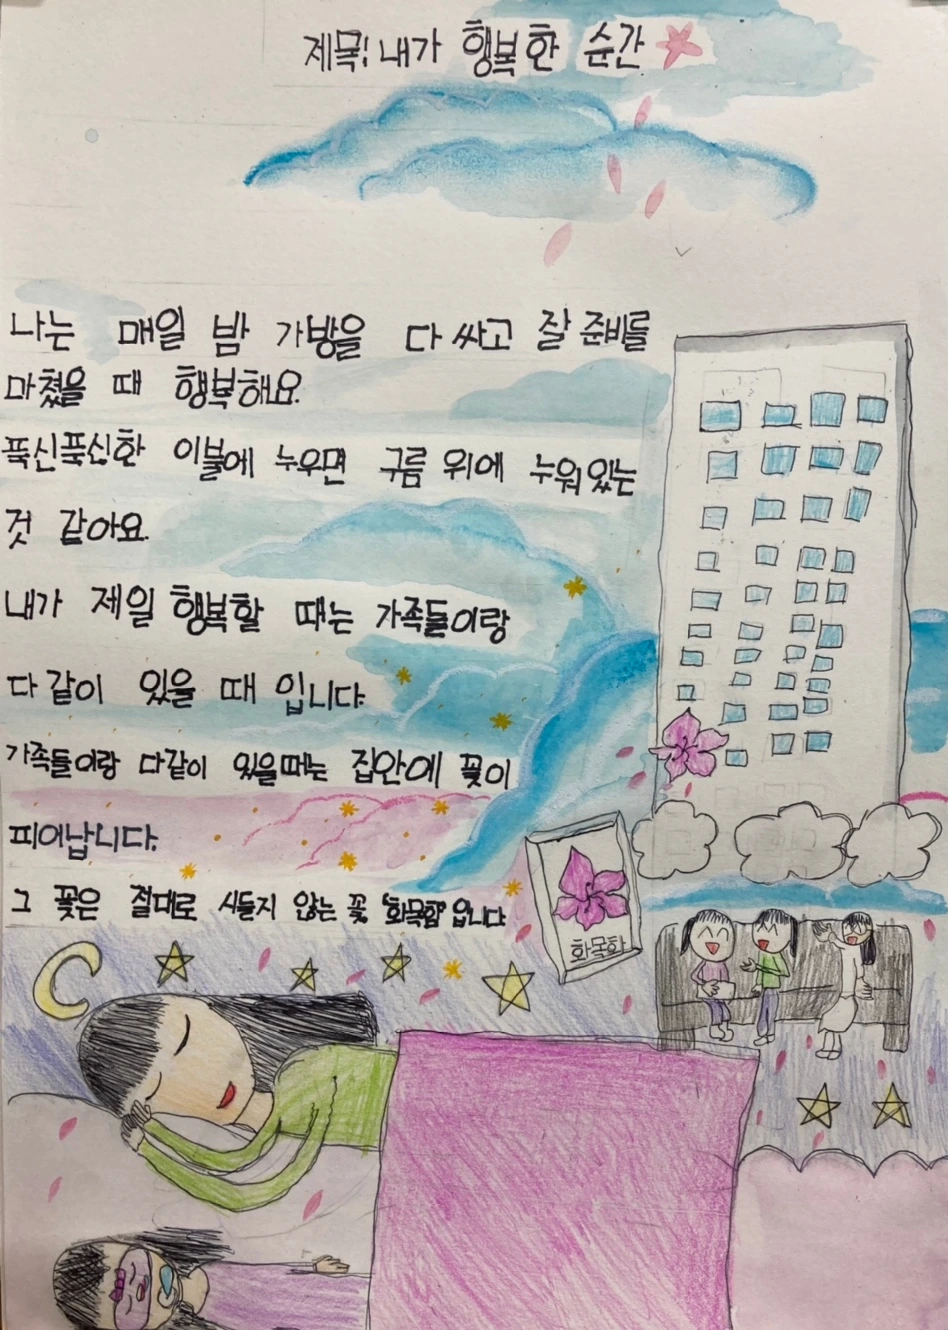 제목! 내가 행복한 순간
나는 매일 밤 가방을 다 싸고 잘 준비를
마쳤을 때 행복해요.
푹신푹신한 이불에 누우면 구름 위에 누워있는
것 같아요.
내가 제일 행복할 때는 가족들이랑
다 같이 있을 때 입니다.
가족들이랑 다같이 있을때는 집안에 꽃이
피어납니다.
그 꽃은 절대로 시들지 않는 꽃 "화목함" 입니다
화목화